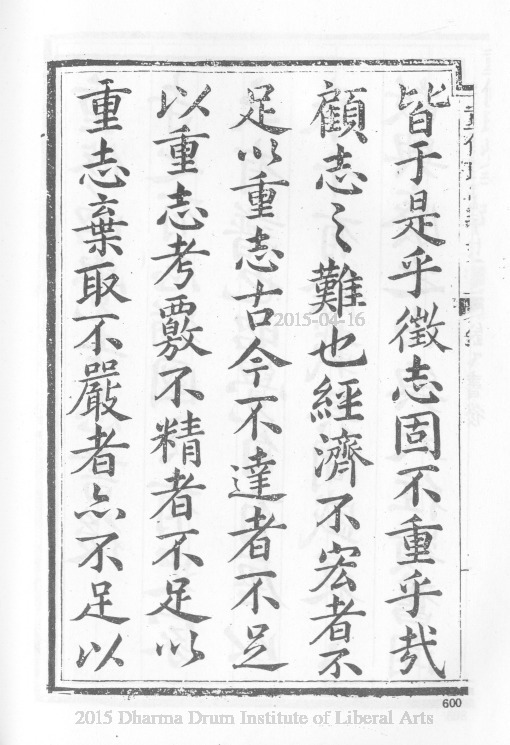 皆于是乎徵志固不重乎㢤
顧志之難也經濟不宏者不
足以重志古今不達者不足
以重志考覈不精者不足以
重志棄取不嚴者亦不足以
2015-04-16
600
2015 Dharma Drum Institute of Liberal Arts